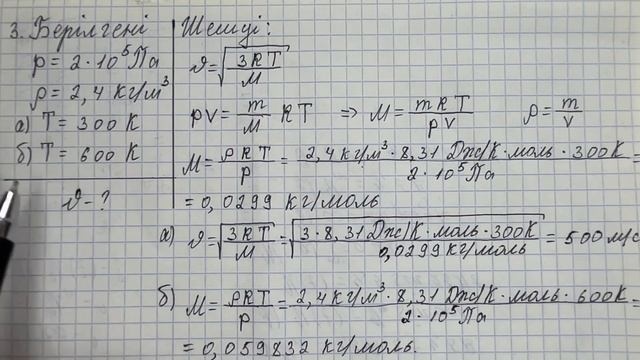 3. Берілгені
p = 2 · 10⁵ Па
ρ = 2,4 кг/м³
а) T = 300 К
б) T = 600 К
𝜗 - ?
Шешуі:
𝜗 = √(3RT/M)
pV = m/M RT ⇒ M = mRT/pV ρ = m/V
M = ρRT/p = 2,4 кг/м³ · 8,31 Дж/К · моль · 300К / 2 · 10⁵ Па =
= 0,0299 кг/моль
а) 𝜗 = √(3RT/M) = √(3 · 8,31 Дж/К · моль · 300К / 0,0299 кг/моль) = 500 м/с
б) M = ρRT/p = 2,4 кг/м³ · 8,31 Дж/К · моль · 600К / 2 · 10⁵ Па =
= 0,059832 кг/моль.